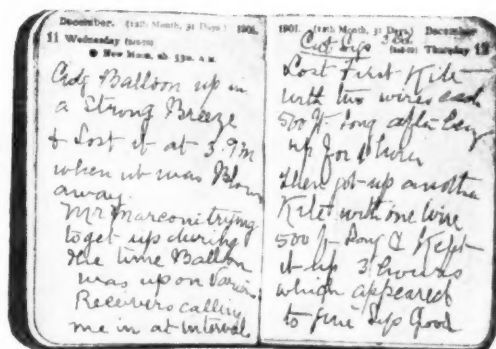 December. (12th Month, 31 Days) 1901.
11 Wednesday
New Moon, 2h. 53m. a.m.
Balloon up in
a Strong Breeze
& Lost it at 3. PM
when it was Blown
away.
Mr Marconi trying
to get up during
the time Balloon
was up on various
Receivers calling
me in at interval
1901. (12th Month, 31 Days) December
Thursday 12
Lost First Kite
with two wires each
500 ft Long after being
up for 1 hour
then got up another
Kite with one wire
500 ft Long & Kept
it up 3 hours
which appeared
to Sigs Good